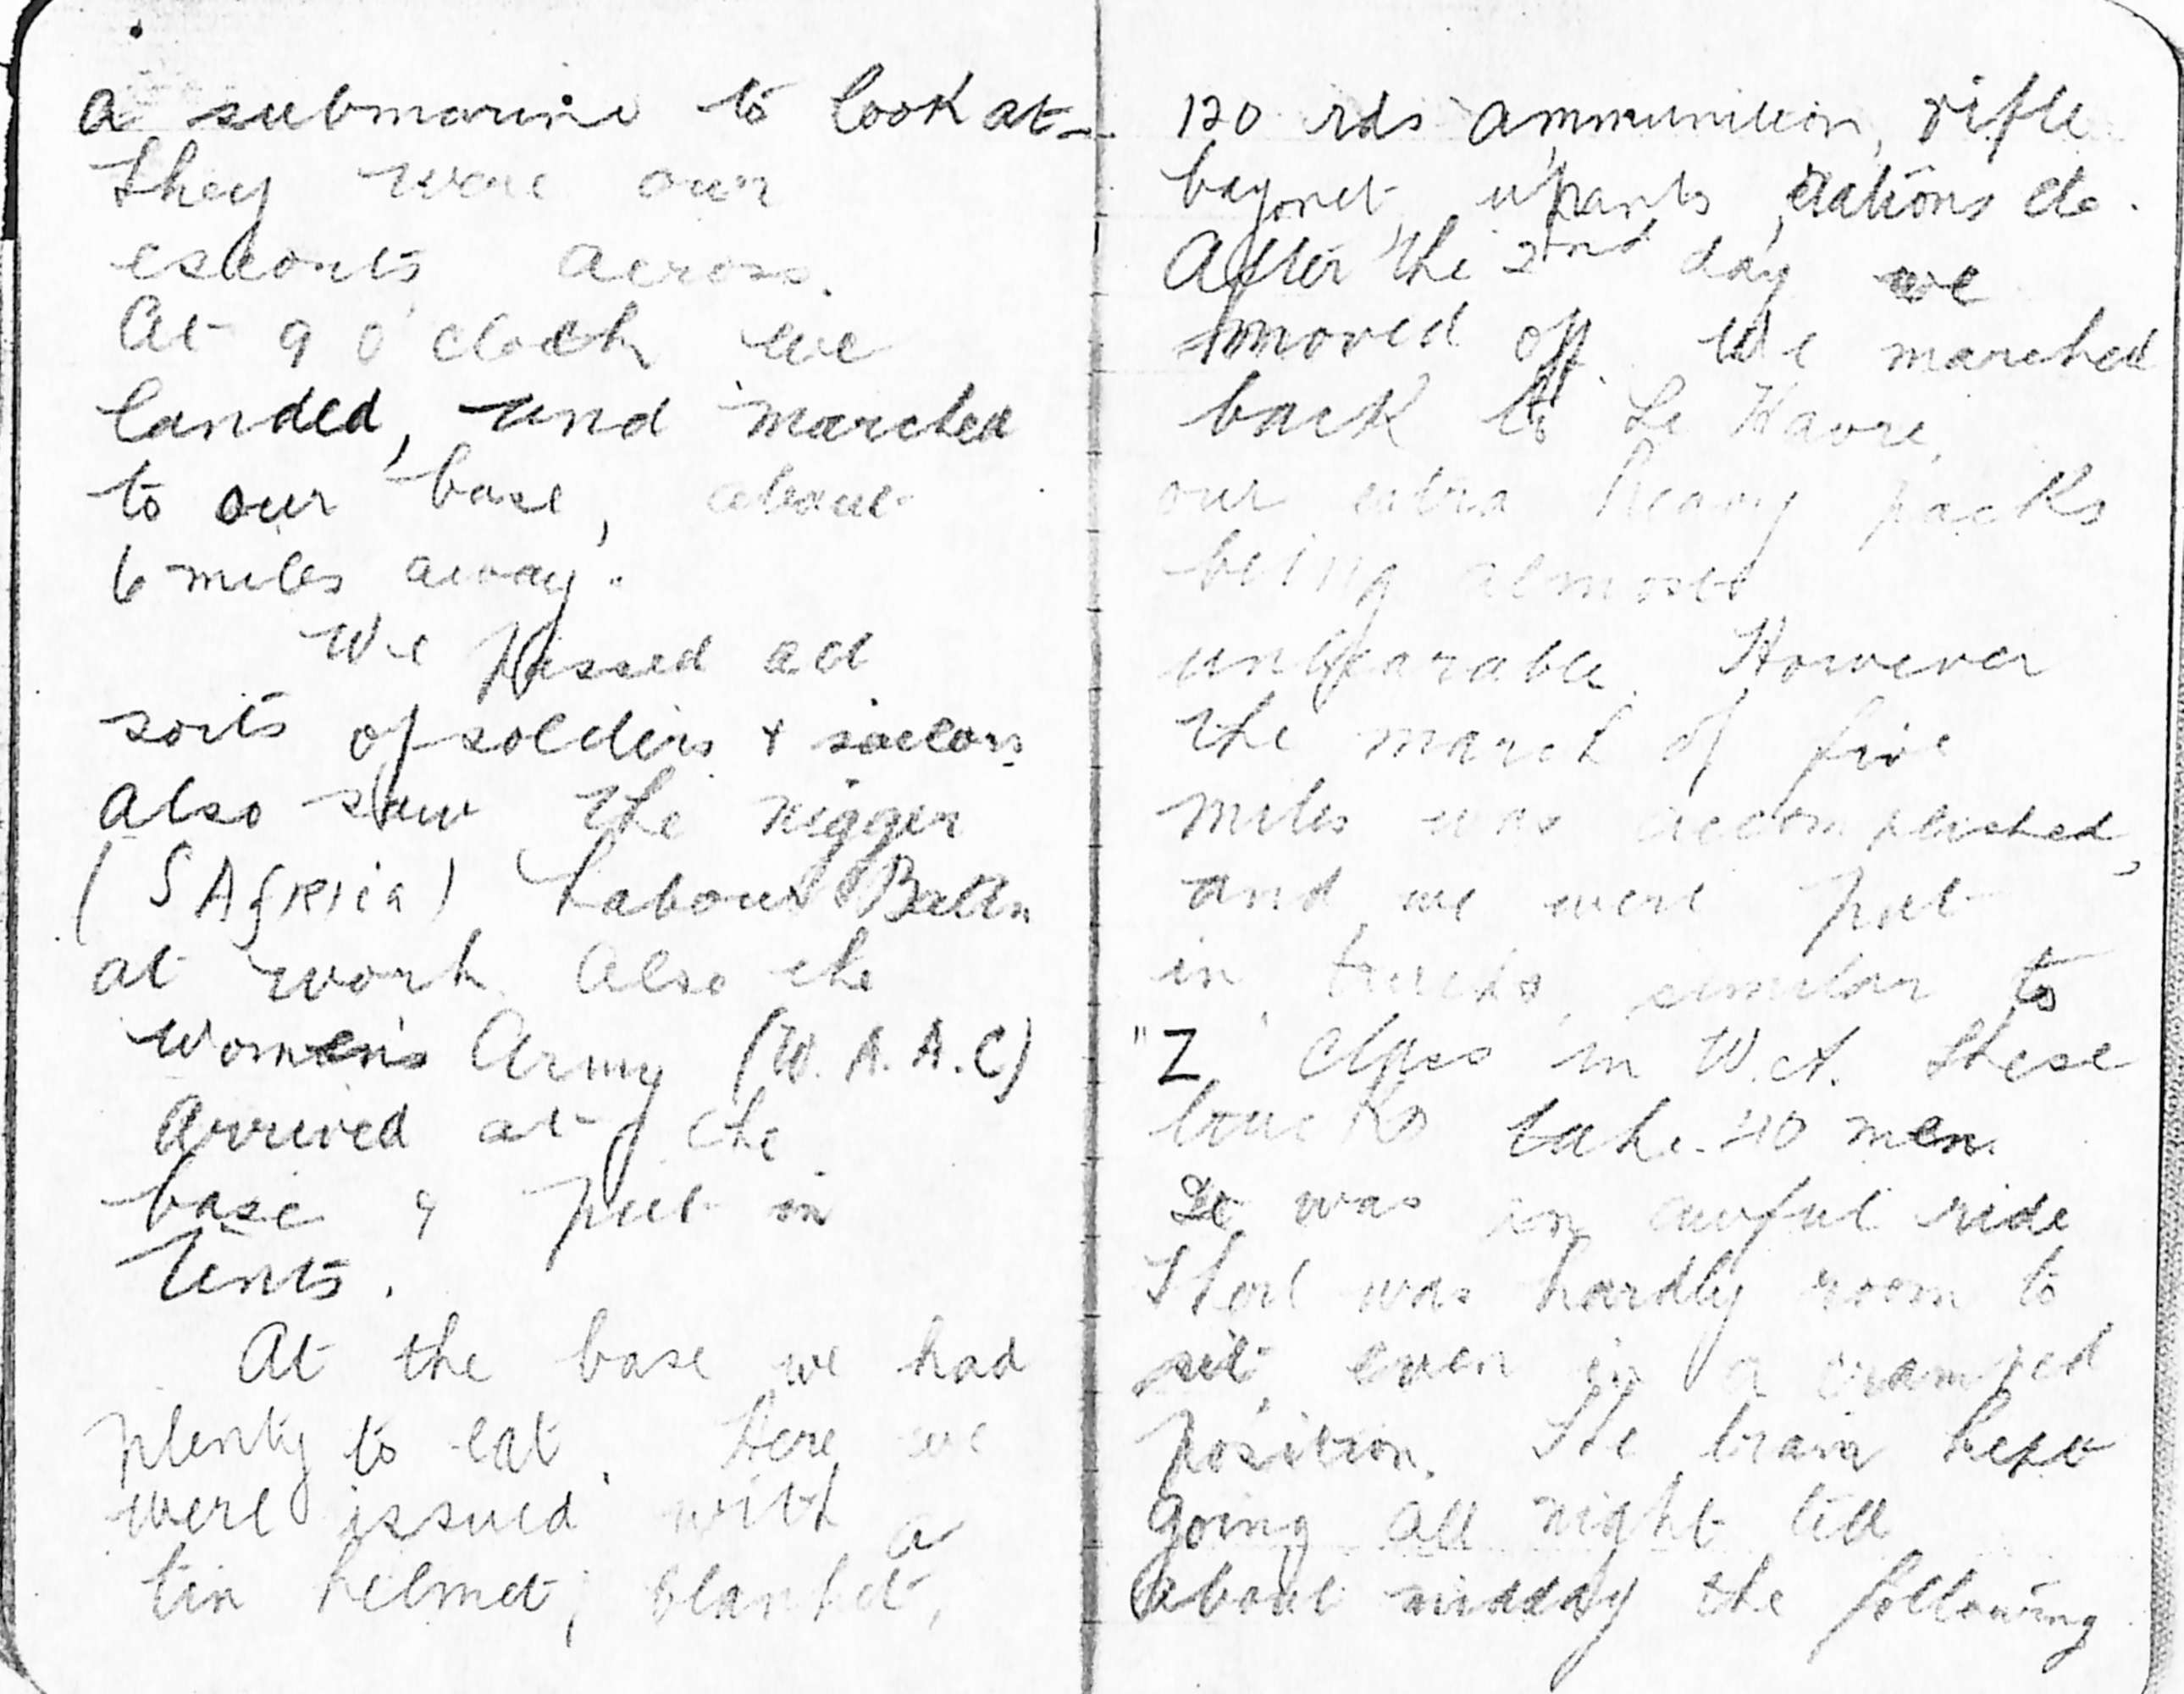 a submarine to look at
They were our
escorts across.
At 9 O'clock we
landed, and marched
to our base, about
6 miles away.
We passed all
sorts of soldiers + sailors
also saw the nigger
(S Africia) Labour Battn
at work. Also the
Women's Army (W.A.A.C)
Arrived at the
base & put in
Tents.
At the base we had
plenty to eat. Here we
were issued with a
tin helmet, blanket,
120 rds ammunition, rifle
bayonet, rations etc.
After the 2nd day we
moved off. We marched
back to Le Havre,
our extra heavy packs
being almost
unbearable. However
the march of five
miles was accomplished,
and we were put
in trucks, similar to
"Z" class in W.A. These
trucks take 40 men.
It was an awful ride
There was hardly room to
sit, even in a cramped
position. The train kept
going all night till
about midday the following